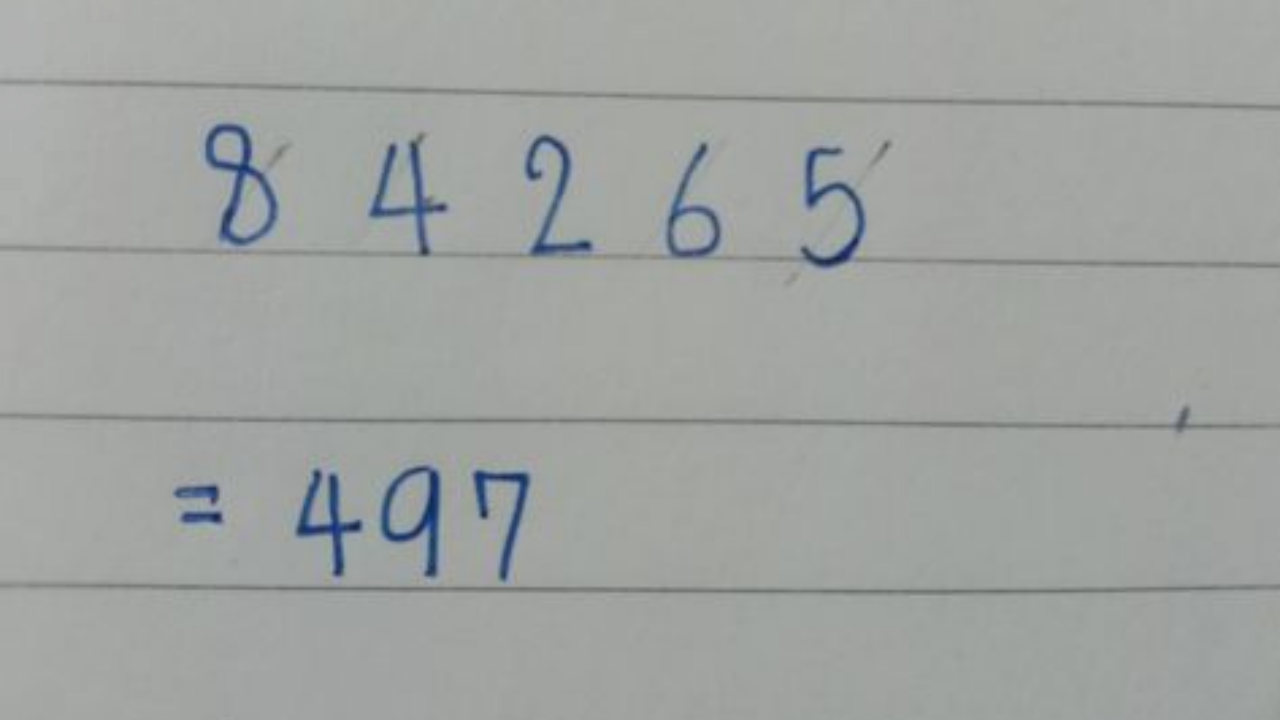 8 4 2 6 5
= 497